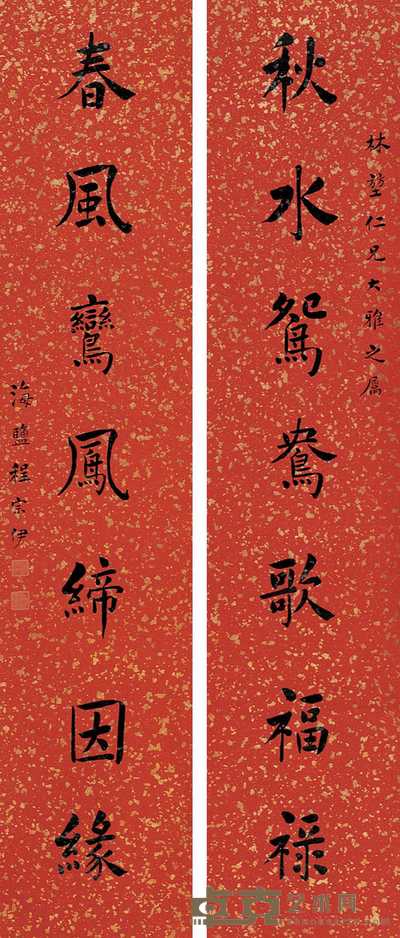 林堃仁兄大雅之属
秋水鴛鴦歌福祿
春風鸞鳳締因緣
海鹽程宗伊